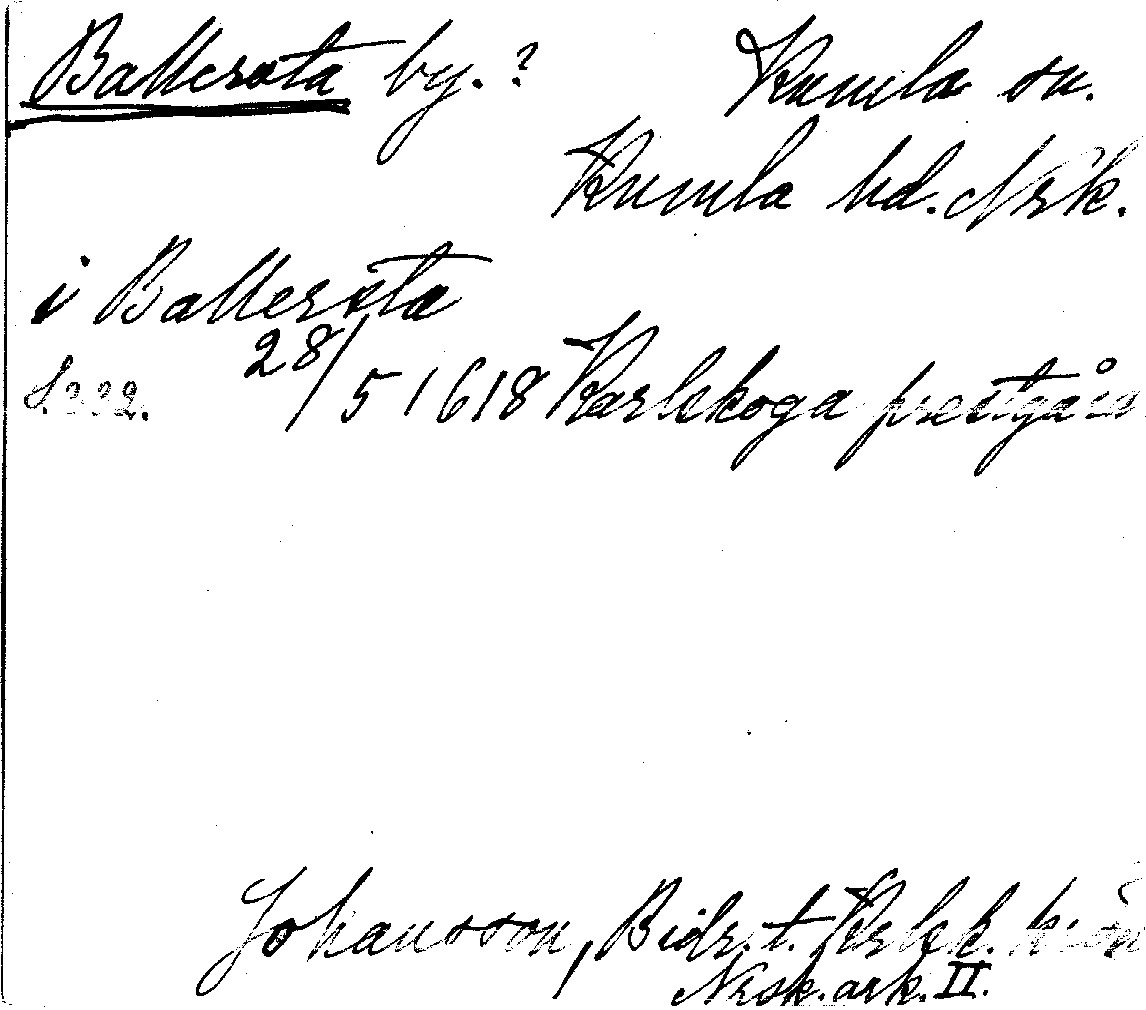 Ballersta by. ? Kumla sn.
Kumla hd. Nrk.
i Ballersta
S. 222. 28/5 1618 Karlskoga prestgård
Johansson, Bidr. t. Krlsk. krön
Nrsk. ark. II.